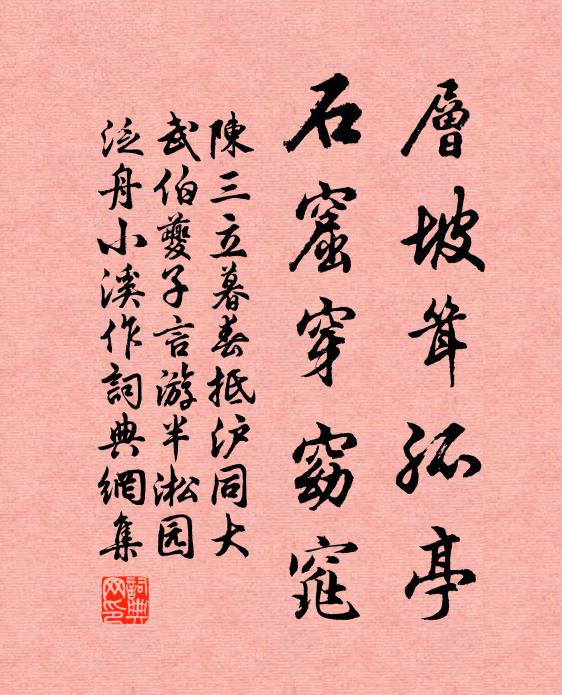 層坡耸孤亭
石窟穿窈窕
陳三立暮春抵沪同大
武伯夔子言游半淞园
泛舟小溪作詞典網集
詞典
网印